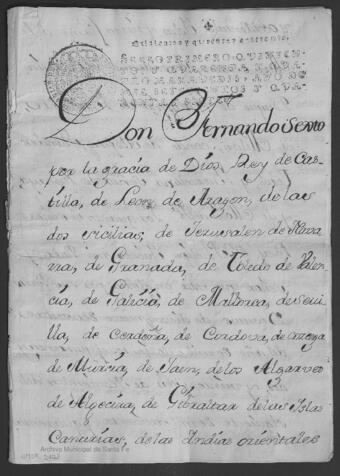 SELLO PRIMERO, QUINIEN-
TOS Y QUARENTA
MARAVEDIS, AÑO DE
MIL SETECIENTOS Y QUA-
Don Fernando Sexto
por la gracia de Dios, Rey de Cas
tilla, de Leon, de Aragon, de las
dos sicilias, de Jerusalen, de Nava
rra, de Granada, de Toledo de Valen
cia, de Galicia, de Mallorca, de sevi
lla, de Cerdeña, de Cordova, de corzega
de Murcia de Jaen, de los Algarves
de Algecira, de Gibraltar de las Islas
Canarias, de las Indias orientales
Archivo Municipal de Santa Fe